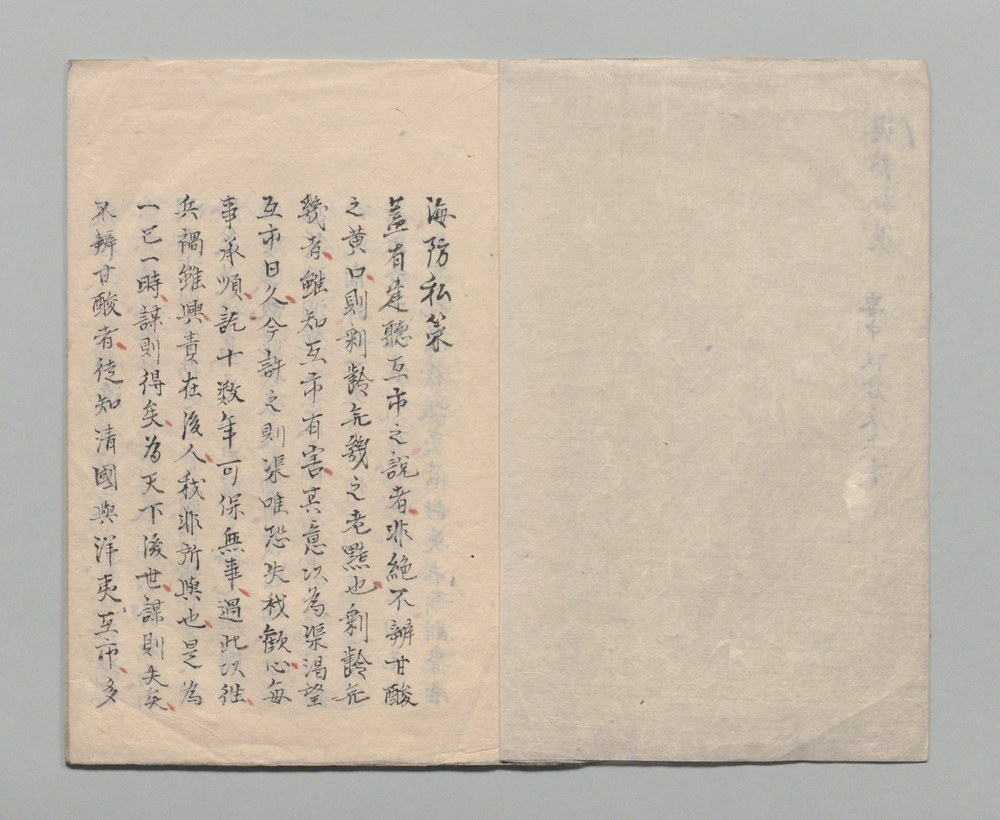 海防私策
蓋有建聽互市之說者非絕不辨甘酸
之黃口則剩齡无幾之老黠也剩齡无
幾者雖知互市有害其意以為渠渴望
互市日久今許之則渠唯恐失我歡心每
事承順訖十數年可保無事過此以徃
兵禍雖興責在後人我非所與也是為
一己一時謀則得矣為天下後世謀則失矣
不辨甘酸者徒知清國與洋夷互市多